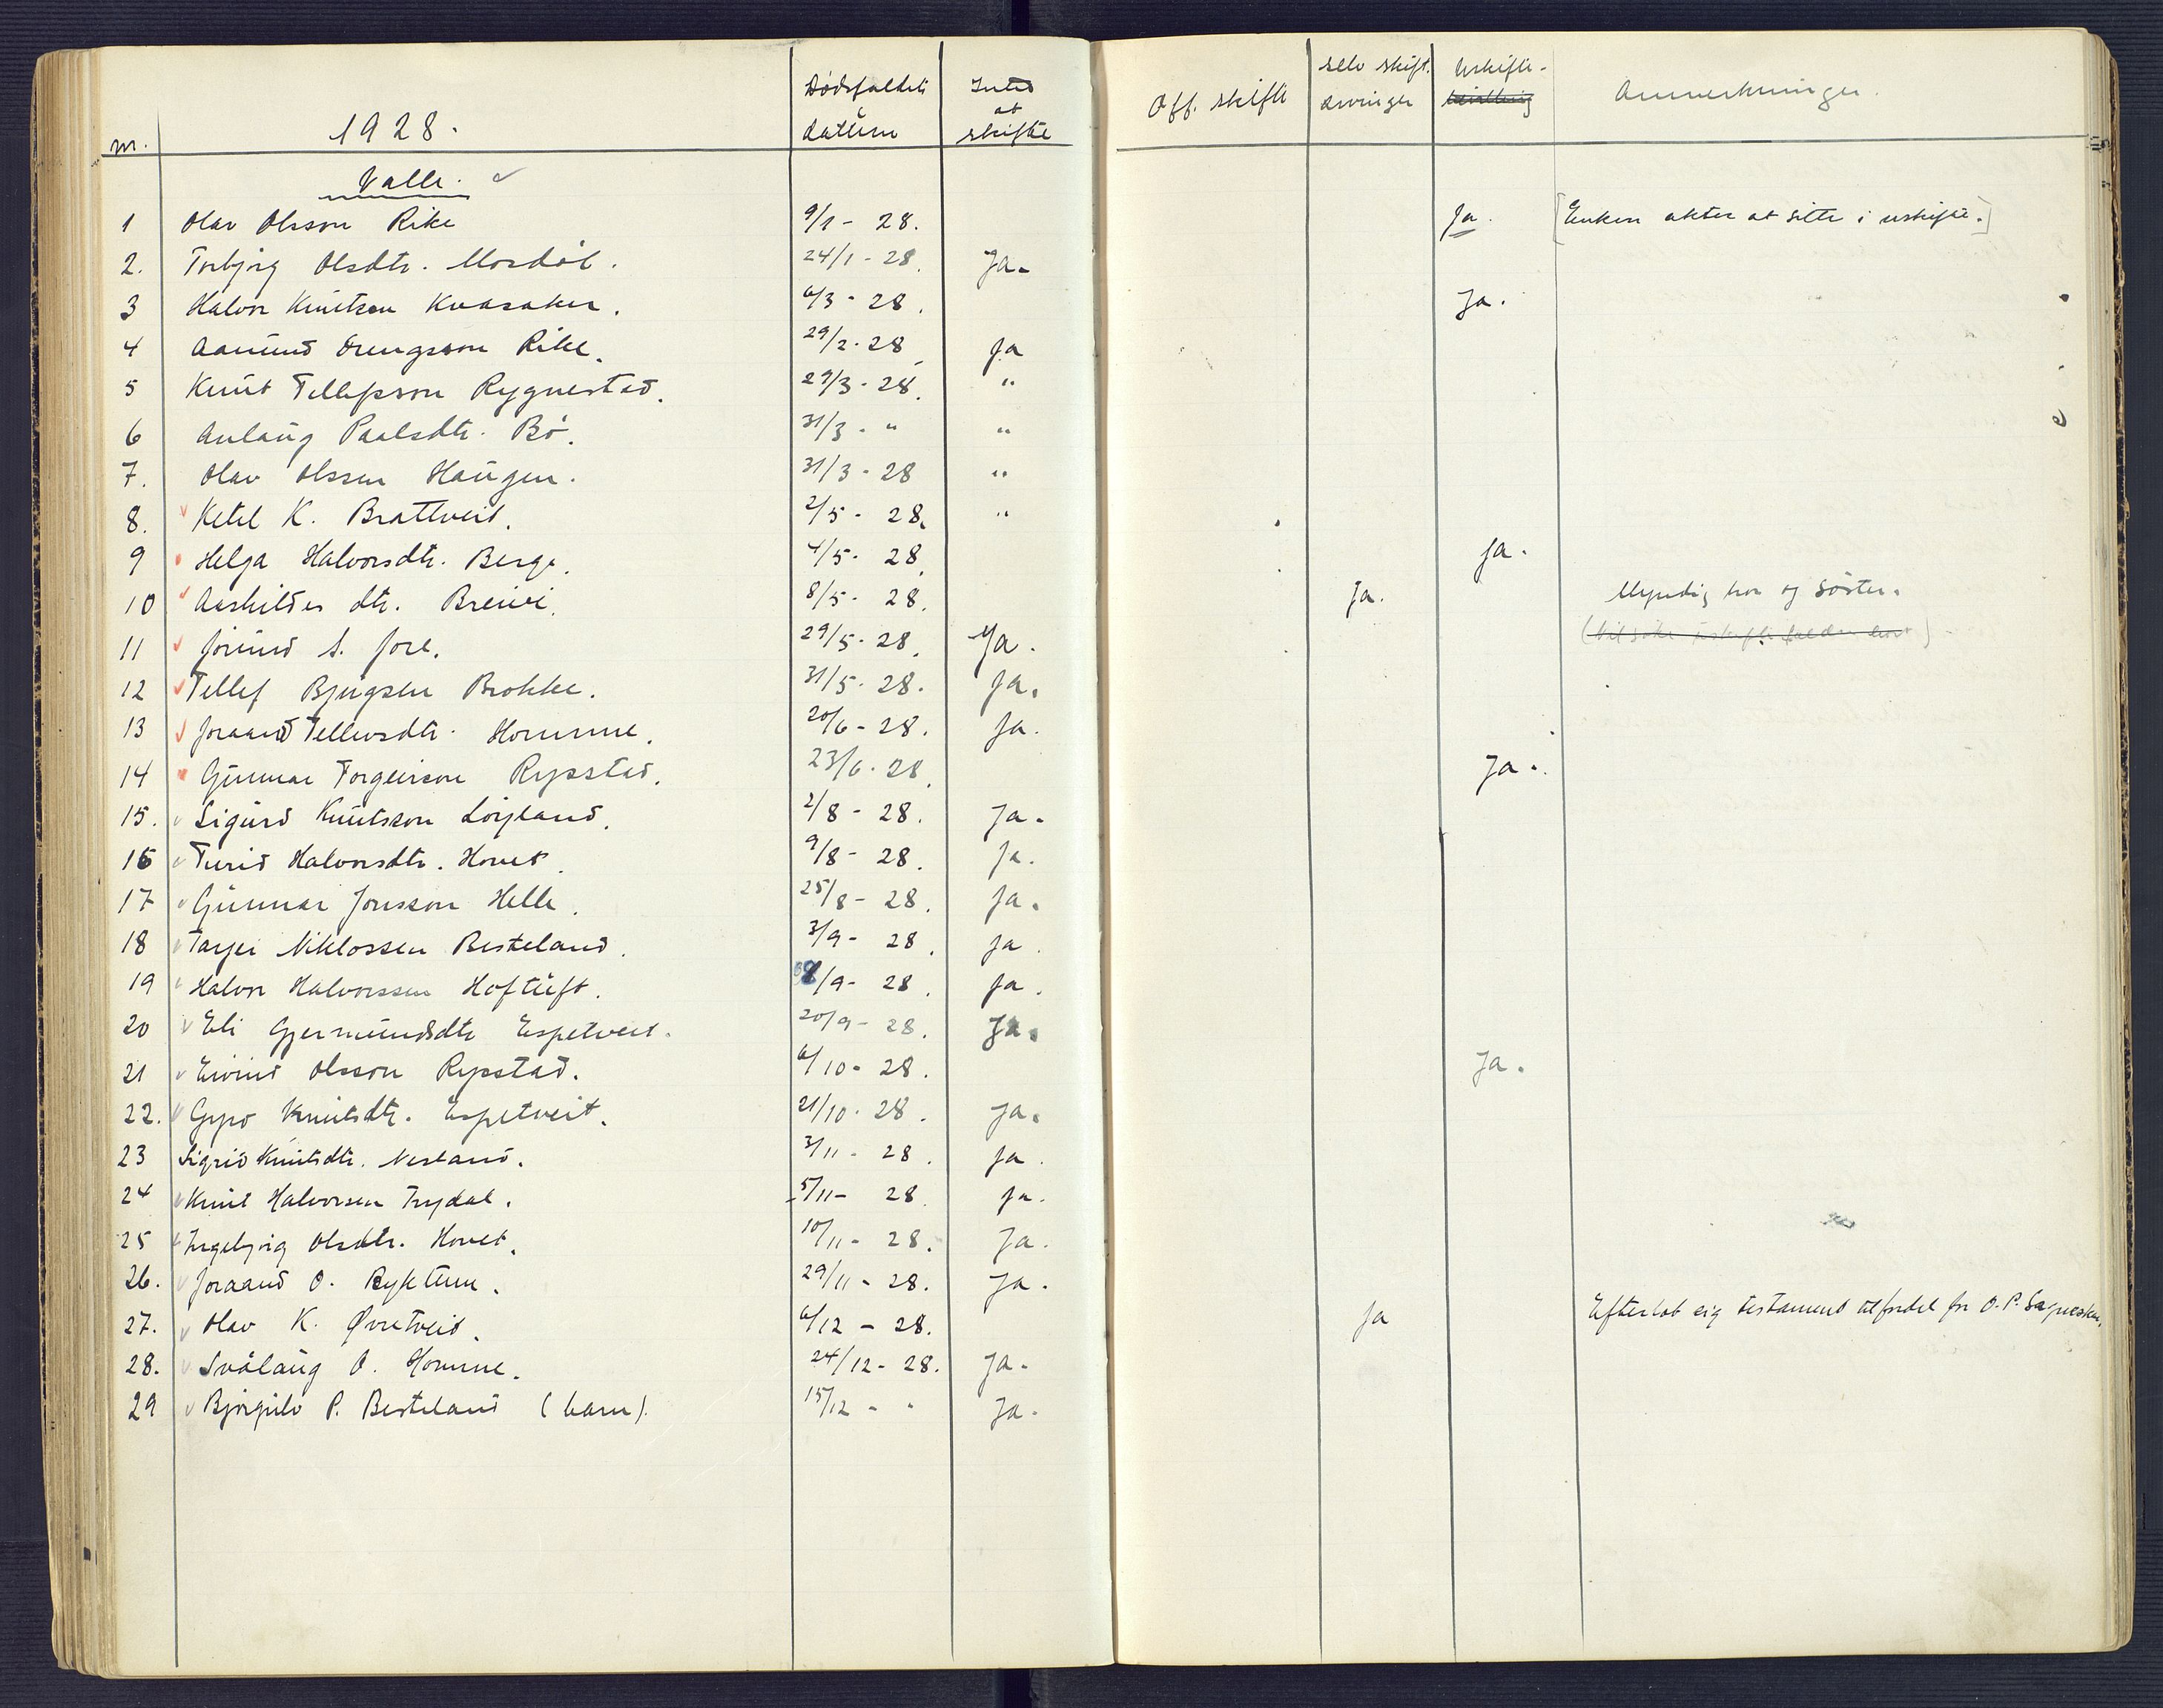 nr. 1928. Dødsfaldets datum Intet at skifte Off. skifte selv skift. arvinger Uskifte-
Anmerkninger.
Valle.
1 Olav Olsson Rike 9/1 - 28. Ja. [Enken akter at sitte i uskifte.]
2. Torbjørg Olsdtr. Mosdøl. 24/1 - 28. Ja.
3 Halvor Knutson Kvasaker. 6/3 - 28. Ja.
4 Aanund Drengsson Rike. 29/2 - 28 Ja
5 Knut Tellefsson Rygnestad. 29/3 - 28. "
6 Anlaug Paalsdtr. Bø. 31/3 - " "
7. Olav Olssen Haugen. 31/3 - 28 "
8. Ketil K. Brattveit. 2/5 - 28. "
9 Helga Halvorsdtr. Berge. 4/5 - 28. Ja.
10 Aashildes dtr. Breivi. 8/5 - 28. Ja. Myndig bror og søster.
11 Jorund S. Jore. 29/5 - 28. Ja.
12 Tellef Bjugsen Brokke. 31/5 - 28. Ja.
13 Joraand Tellevsdtr. Homme. 20/6 - 28. Ja.
14 Gunnar Torgeirson Rysstad. 23/6 - 28. Ja.
15. Sigurd Knutsson Løyland. 2/8 - 28. Ja.
16 Turid Halvorsdtr. Hovet. 9/8 - 28. Ja.
17 Gunnar Jonsson Helle. 25/8 - 28. Ja.
18 Tarjei Niklossen Besteland. 3/9 - 28. Ja.
19 Halvor Halvorssen Hoftuft. 8/9 - 28. Ja.
20 Eli Gjermundsdtr Espetveit. 20/9 - 28. Ja.
21 Eivind Olsson Rysstad. 6/10 - 28. Ja.
22. Gyro Knutsdtr. Espetveit. 21/10 - 28. Ja.
23 Sigrid Knutsdtr. Nesland. 3/11 - 28. Ja.
24 Knut Halvorsen Trydal. 5/11 - 28 Ja.
25 Ingebjørg Olsdtr. Hovet. 10/11 - 28. Ja.
26. Joraand O. Byktun. 29/11 - 28. Ja.
27. Olav K. Øvretveit. 6/12 - 28. Ja Efterlot sig testament tilfordel for O. P.
28. Svålaug O. Homme. 24/12 - 28. Ja.
29 Bjørgulv P. Besteland (barn). 15/12 - " Ja.